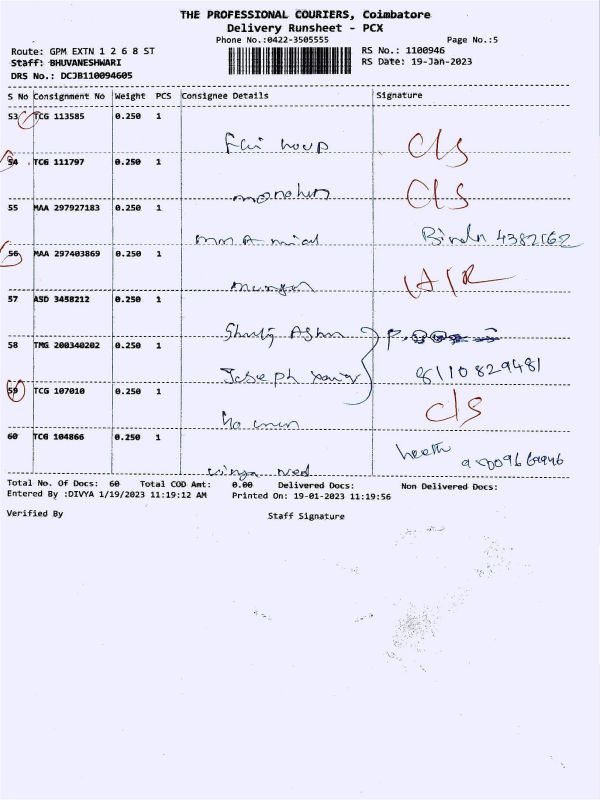 THE PROFESSIONAL COURIERS, Coimbatore
Delivery Runsheet - PCX
Phone No.:0422-3505555 Page No.:5
Route: GPM EXTN 1 2 6 8 ST RS No.: 1100946
Staff: BHUVANESHWARI RS Date: 19-Jan-2023
DRS No.: DCJB110094605
S No Consignment No Weight PCS Consignee Details Signature
53 TCG 113585 0.250 1
cls
54 TCG 111797 0.250 1
cls
55 MAA 297927183 0.250 1
56 MAA 297403869 0.250 1
57 ASD 3458212 0.250 1
58 TMG 200340202 0.250 1
Joseph 8110829481
59 TCG 107010 0.250 1
cls
60 TCG 104866 0.250 1
Total No. Of Docs: 60 Total COD Amt: 0.00 Delivered Docs: Non Delivered Docs:
Entered By :DIVYA 1/19/2023 11:19:12 AM Printed On: 19-01-2023 11:19:56
Verified By Staff Signature